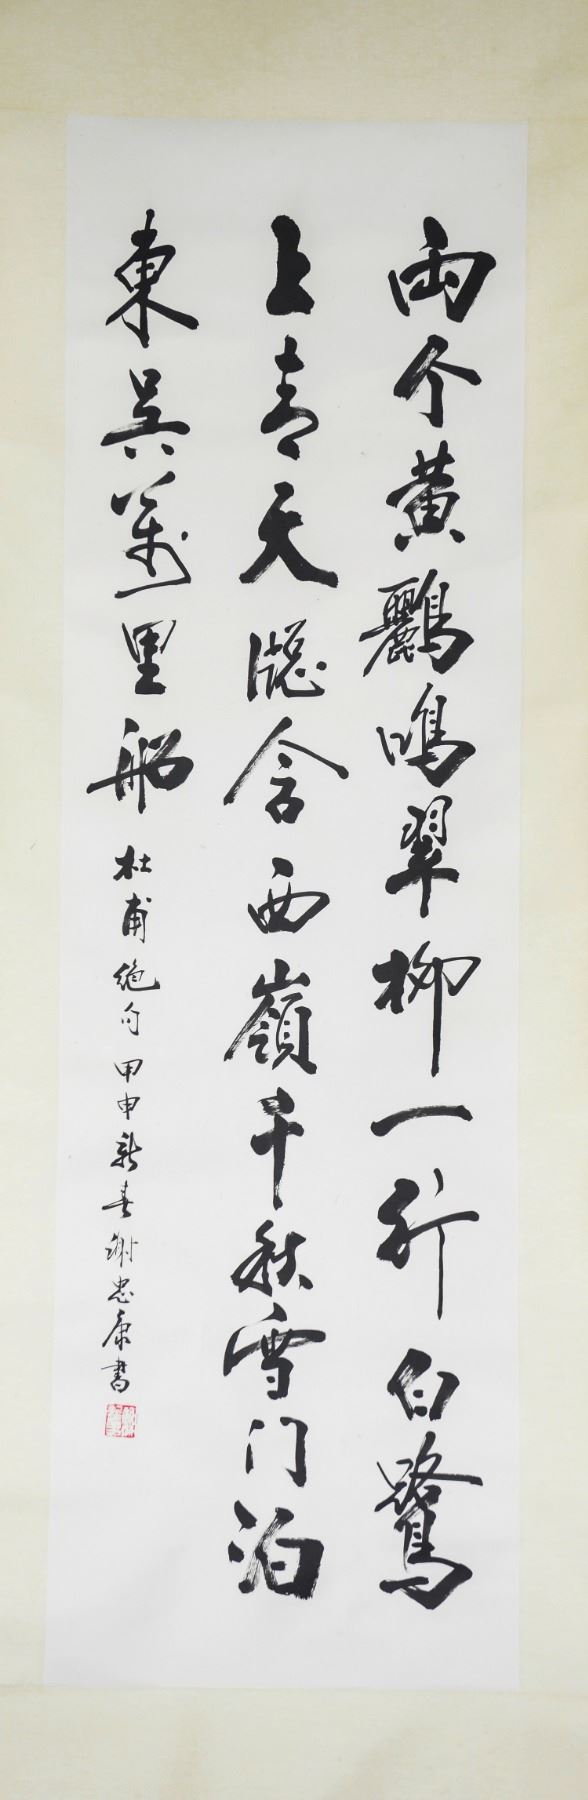 兩个黃鸝鳴翠柳一行白鷺
上青天牕含西嶺千秋雪门泊
東吳萬里船 杜甫绝句 甲申新春谢忠康書